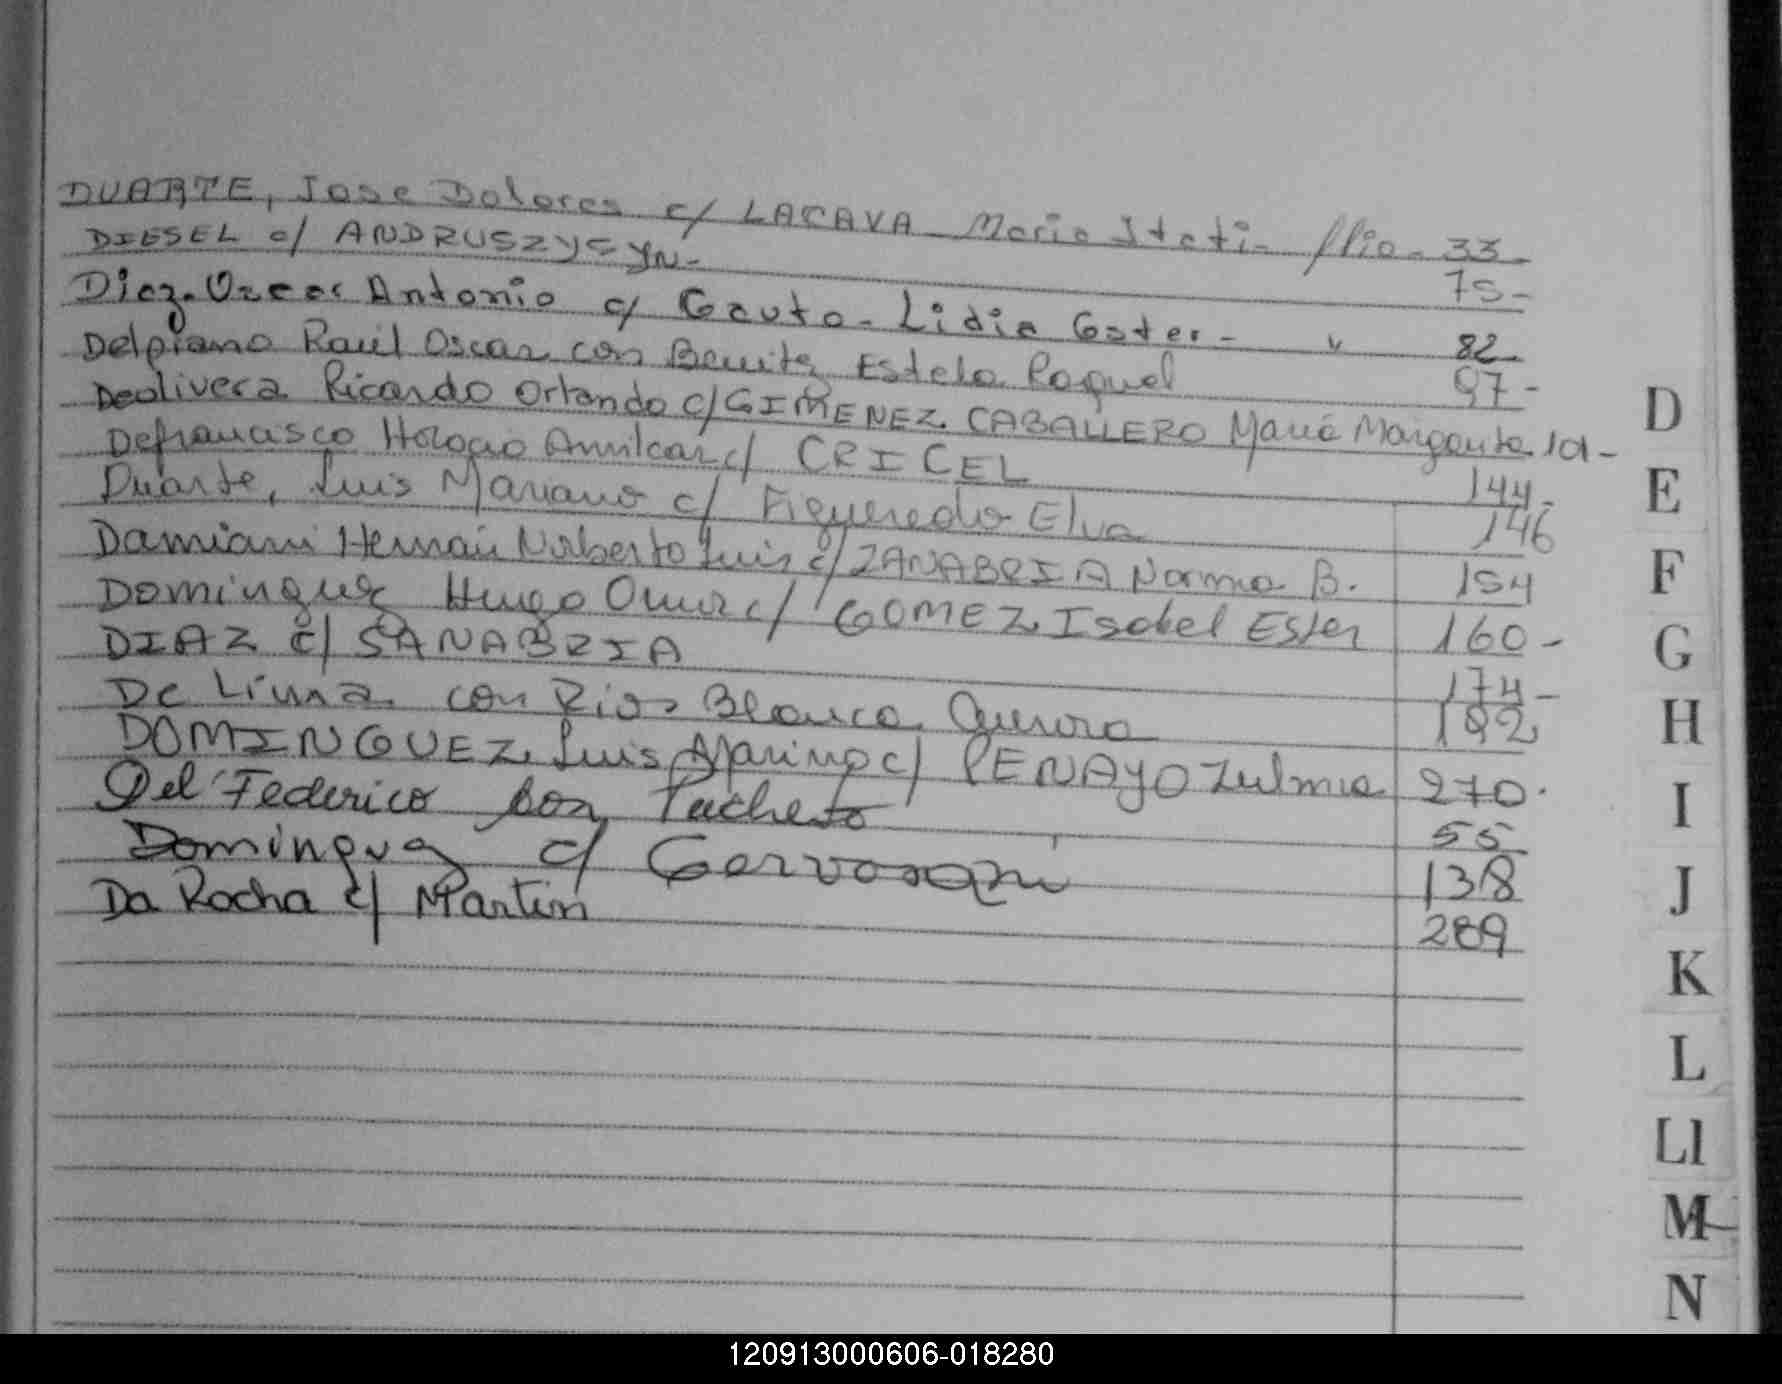 DUARTE, Jose Dolores c/ LACAVA Maria Itati - flio - 33 -
DIESEL c/ ANDRUSZYSYN - 75 -
Diaz - Oscar Antonio c/ Gauto - Lidia Ester - " 82 -
Delpiano Raúl Oscar con Benitz Estela Raquel 97 -
Deolivera Ricardo Orlando c/ GIMENEZ CABALLERO Maria Margarita 101 -
Defrancisco Horacio Amilcar c/ CRICEL 144 -
Duarte, Luis Mariano c/ Figueredo Elva 146
Damiani Hernán Norberto Luis c/ ZANABRIA Norma B. 154
Dominguez Hugo Omar c/ GOMEZ Isabel Ester 160 -
DIAZ c/ SANABRIA 174 -
De Lima con Rios Blanca Aurora 192
DOMINGUEZ Luis Marino c/ PENAYO Zulma 270.
Del Federico con Pacheto 55
Domingue c/ 138
Da Rocha c/ Martin 289
D
E
F
G
H
I
J
K
L
Ll
M
N
120913000606-018280